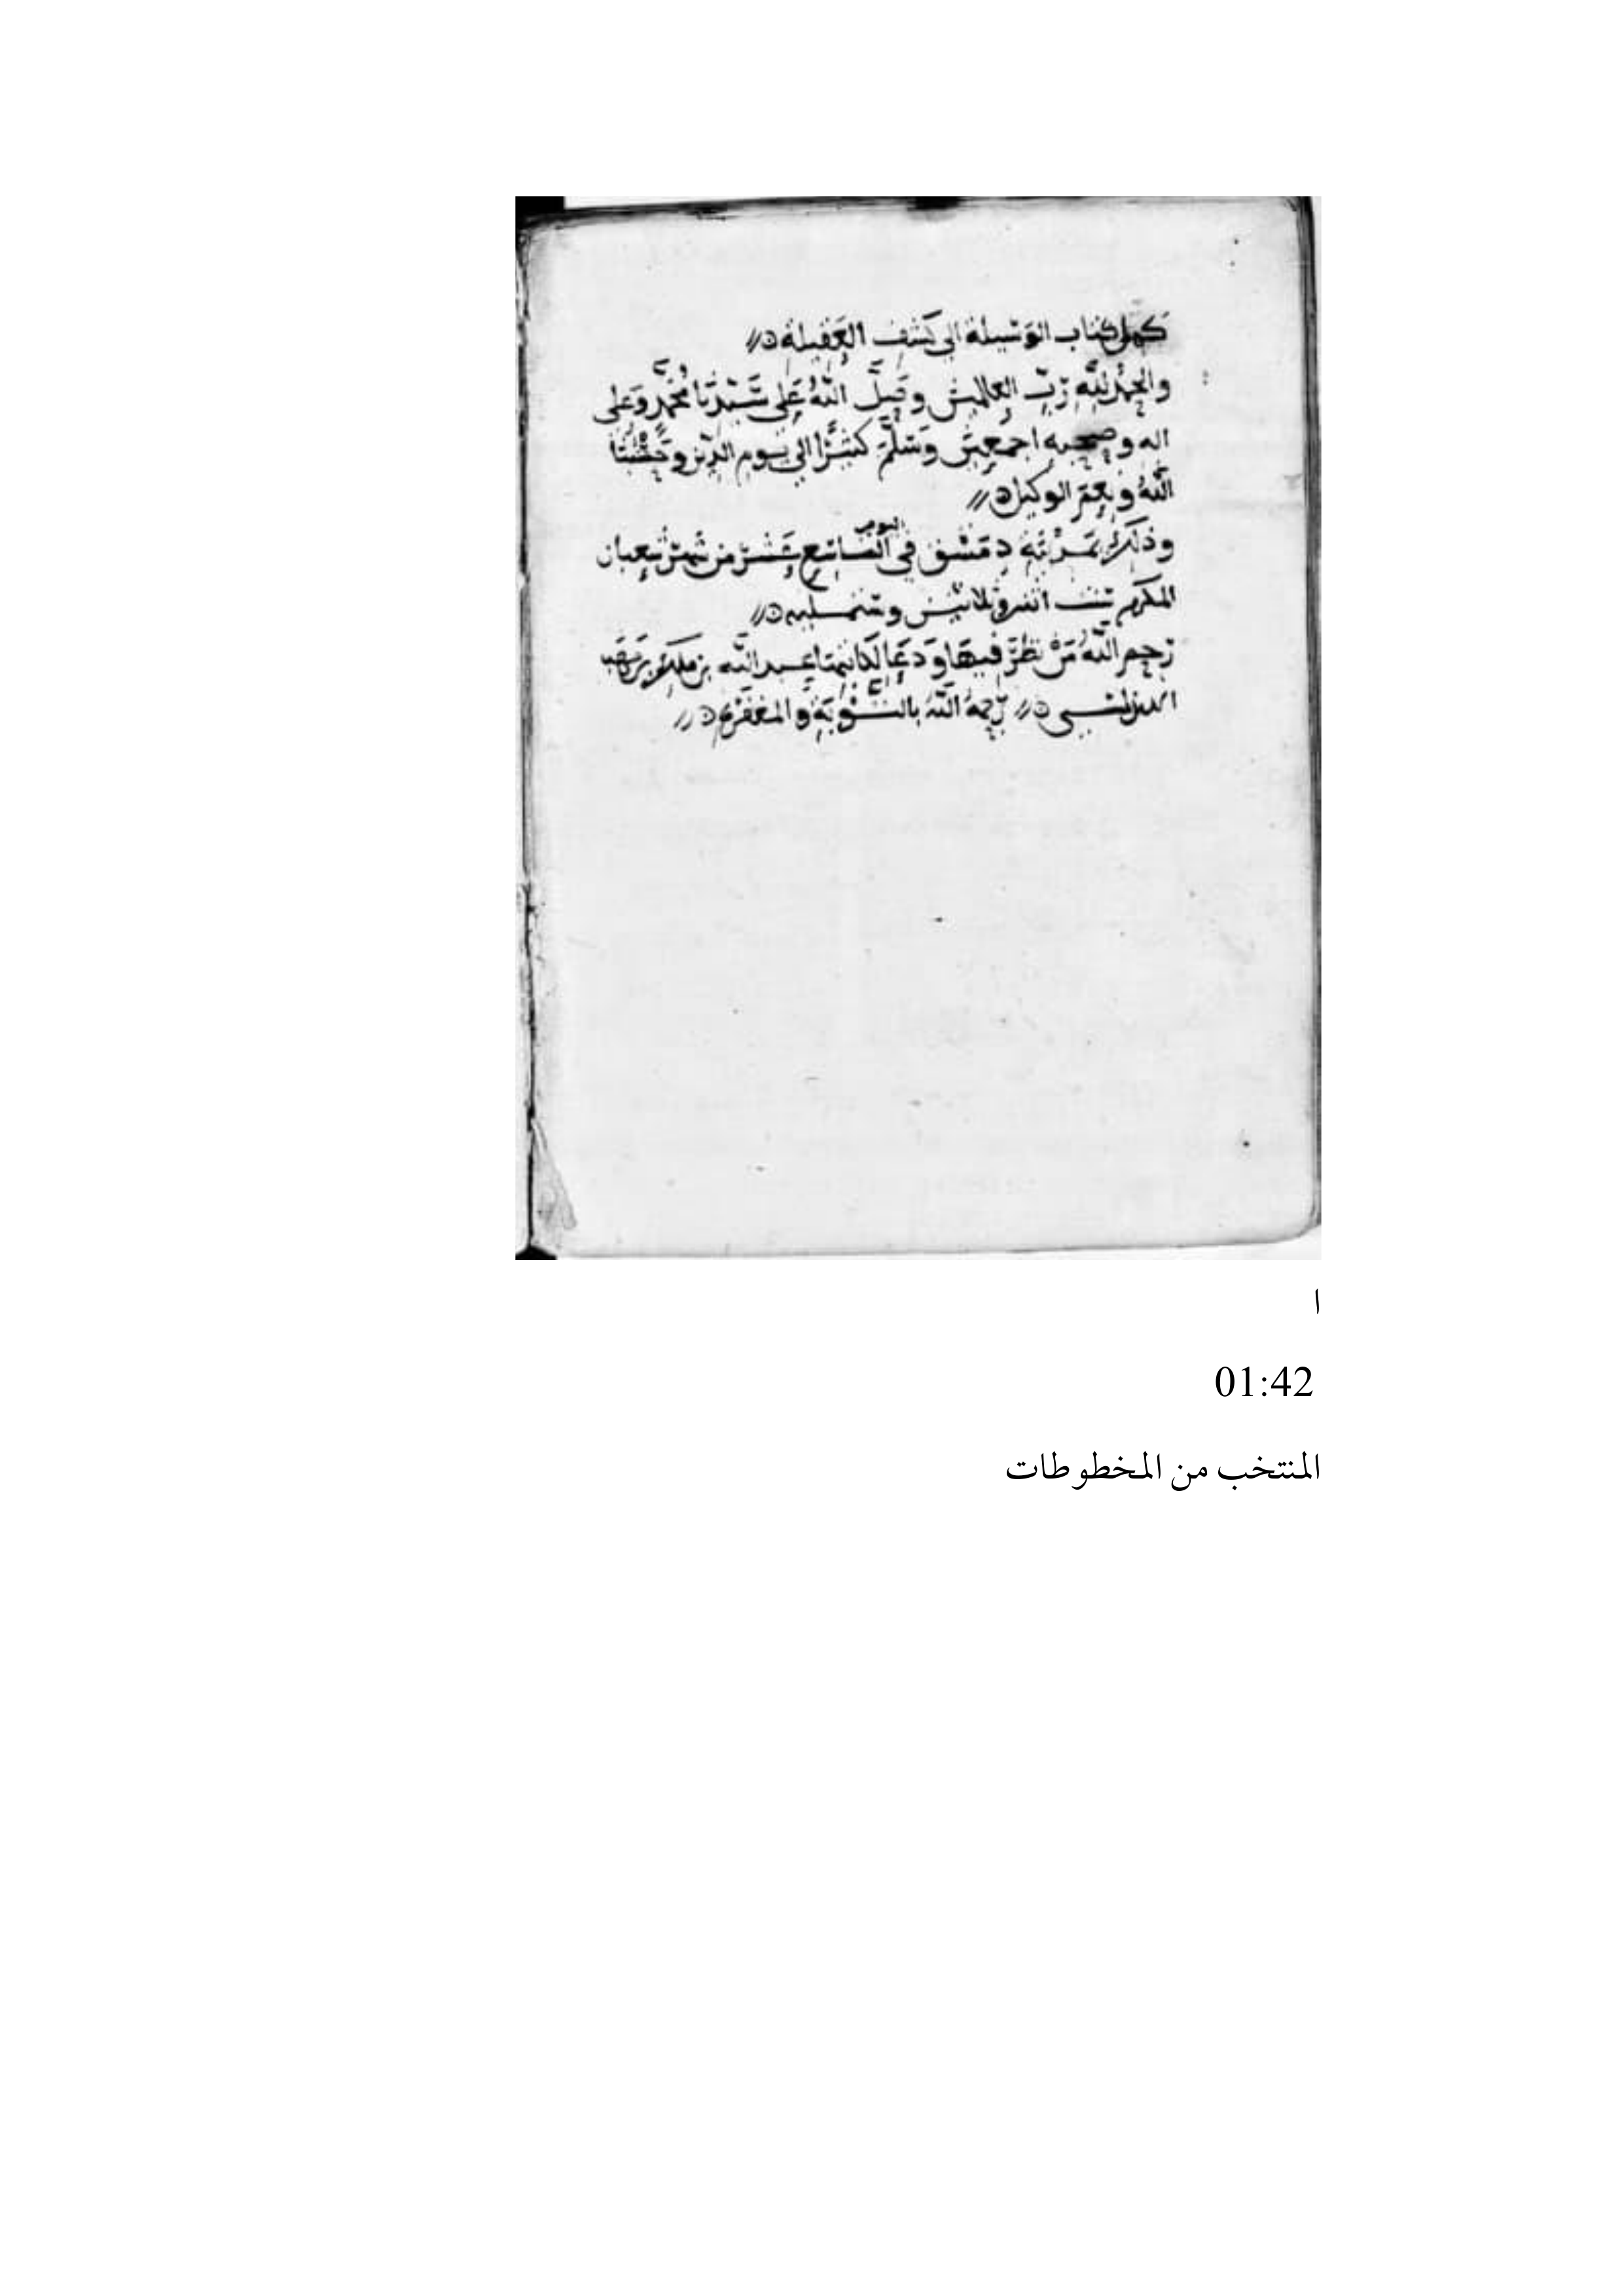 كمل كتاب الوسيلة الى كشف العقيلة
والحمد لله رب العالمين وصلى الله على سيدنا محمد وعلى
اله وصحبه اجمعين وسلم كثيرا الى يوم الدين وحسبنا
الله ونعم الوكيل
وذلك بمدينة دمشق في اليوم السابع عشر من شهر شعبان
المكرم سنت اثنين وثلاثين وستمايه
رحم الله من نظر فيها ودعا لكاتبها عبد الله بن
رحمه الله بالتوبة والمغفرة
ا
01:42
المنتخب من المخطوطات